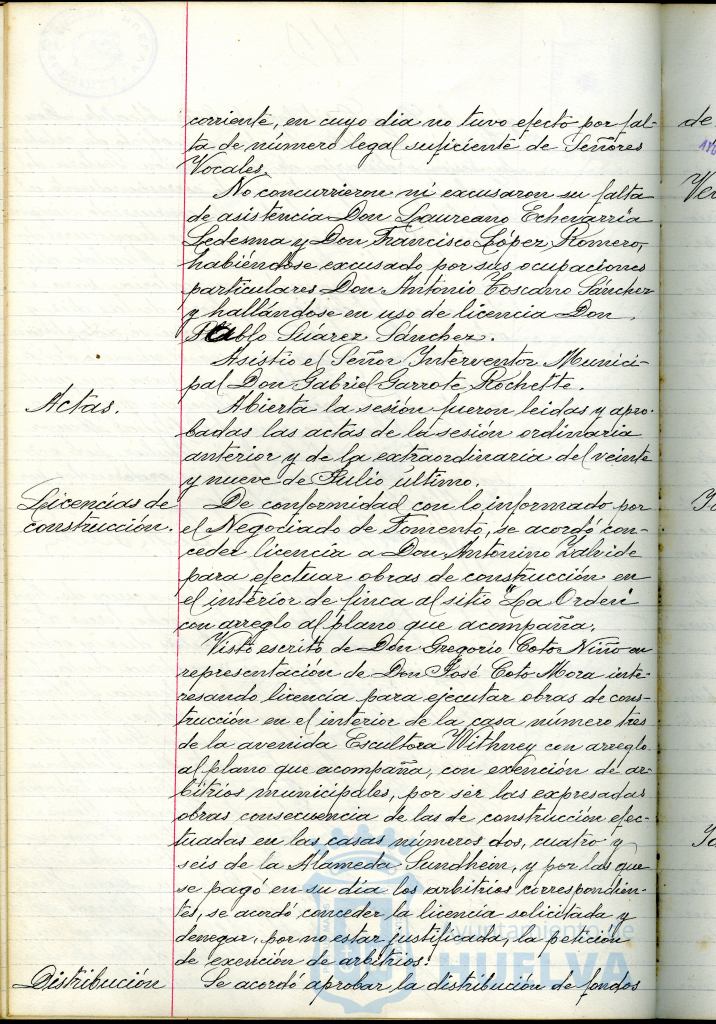 corriente, en cuyo dia no tuvo efecto por fal-
ta de número legal suficiente de Señores
Vocales.
No concurrieron ni excusaron su falta
de asistencia Don Laureano Echevarría
Ledesma y Don Francisco López Romero,
habiéndose excusado por sus ocupaciones
particulares Don Antonio Toscano Sánchez
y hallándose en uso de licencia Don
Pablo Suárez Sánchez.
Asistió el Señor Interventor Munici-
pal Don Gabriel Garrote Rochette.
Actas.
Abierta la sesión fueron leidas y apro-
badas las actas de la sesión ordinaria
anterior y de la extraordinaria del veinte
y nueve de Julio último.
Licencias de
construcción.
De conformidad con lo informado por
el Negociado de Fomento, se acordó con-
ceder licencia a Don Antonino Zalvide
para efectuar obras de construcción en
el interior de finca al sitio "La Orden"
con arreglo al plano que acompaña.
Visto escrito de Don Gregorio Coto Niño en
representación de Don José Coto Mora inte-
resando licencia para ejecutar obras de cons-
trucción en el interior de la casa número tres
de la avenida Escultora Withney con arreglo
al plano que acompaña, con exención de ar-
bitrios municipales, por ser las expresadas
obras consecuencia de las de construcción efec-
tuadas en las casas números dos, cuatro y
seis de la Alameda Sundhein, y por las que
se pagó en su día los arbitrios correspondien-
tes, se acordó conceder la licencia solicitada y
denegar, por no estar justificada, la petición
de exención de arbitrios.
Distribución
Se acordó aprobar la distribución de fondos
de
Ayuntamiento de
HUELVA